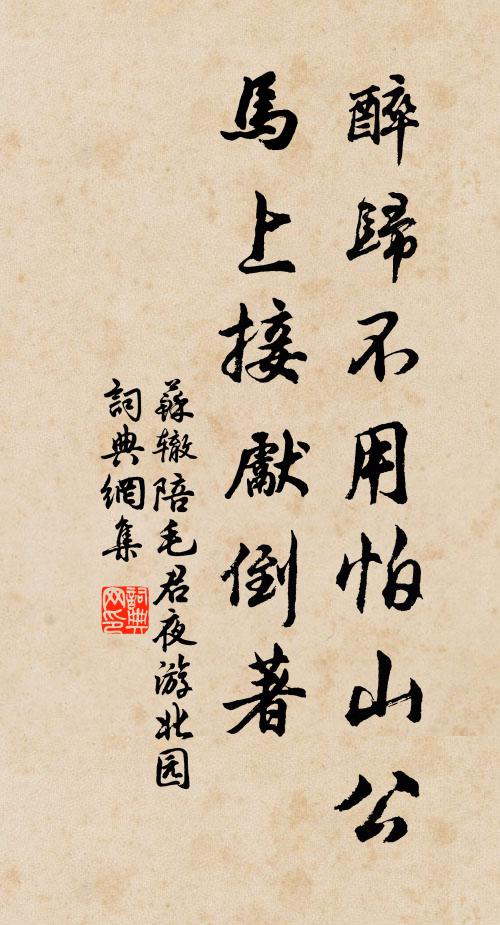 醉歸不用怕山公
馬上接獻倒著
蘇辙陪毛君夜游北园
詞典網集
詞典网印